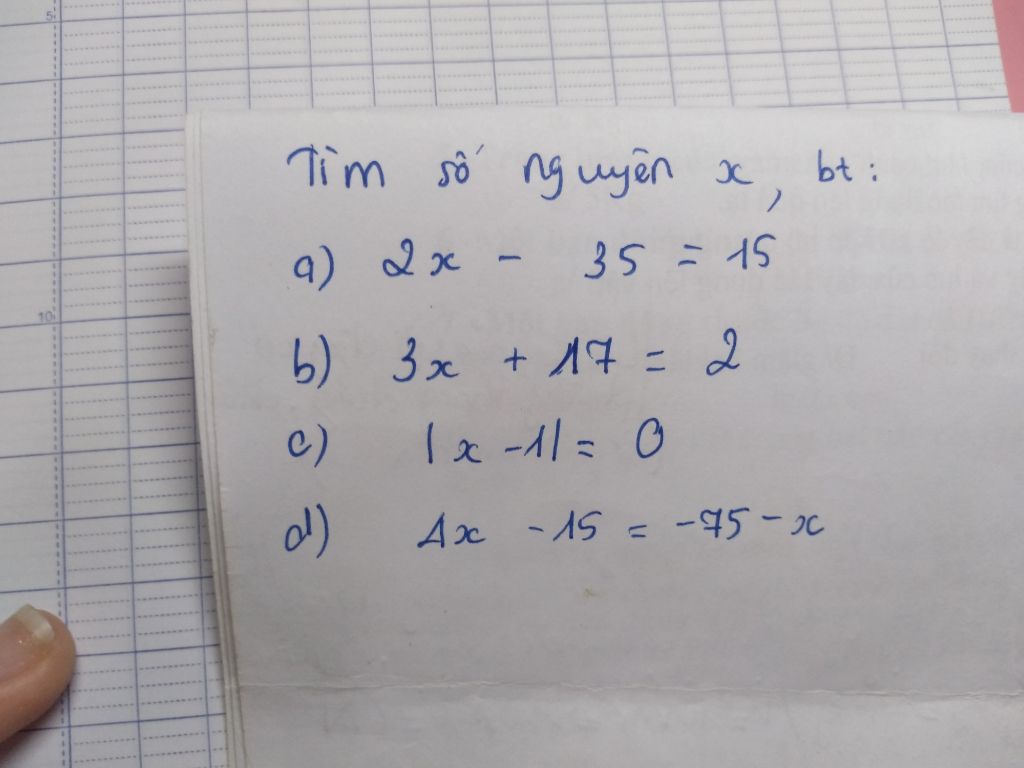 Tìm số nguyên x, bt:
a) 2x - 35 = 15
b) 3x + 17 = 2
c) |x - 1| = 0
d) 4x - 15 = -75 - x
5
10